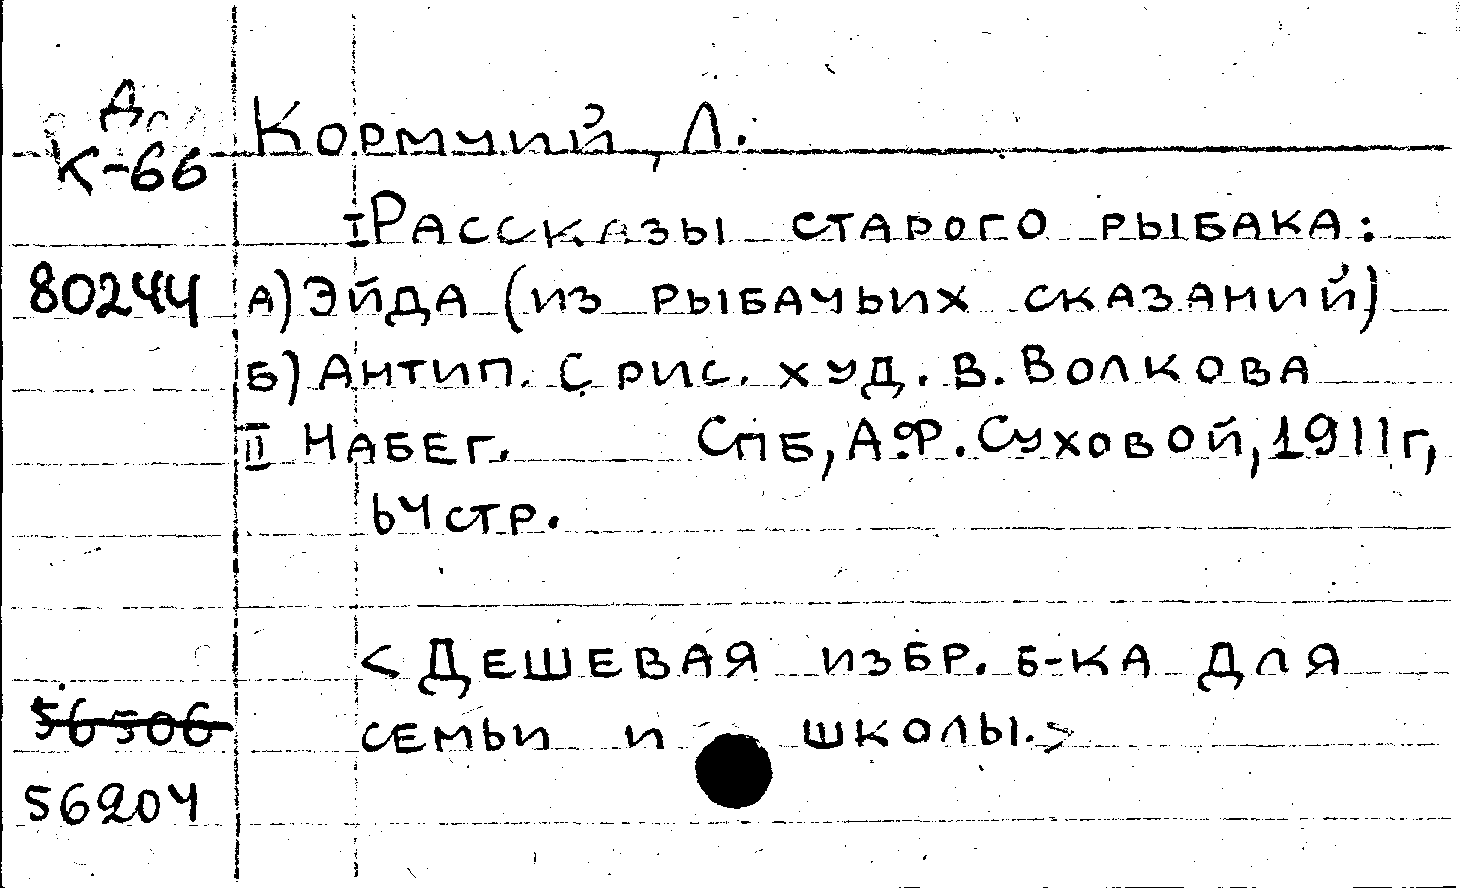 Д
К-66
Кормчий, Л.
I Рассказы старого рыбака:
80244 а) Эйда (из рыбачьих сказаний)
б) Антип. С рис. худ. В. Волкова
II Набег. Спб, А.Ф. Суховой, 1911 г,
64 стр.
<Дешевая избр. б-ка для
56506 семьи и школы.>
56204